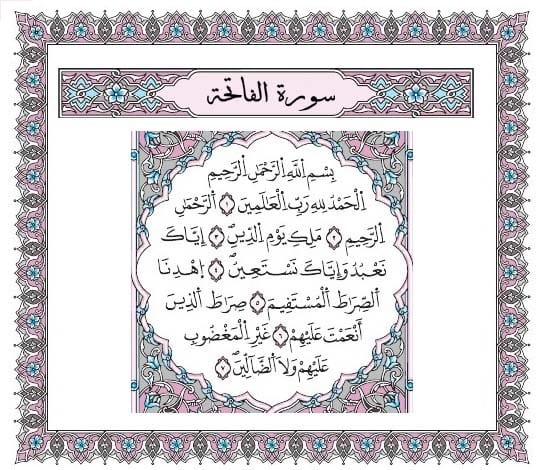 سورة الفاتحة
بِسْمِ اِللَّهِ اِلرَّحْمَٰنِ اِلرَّحِيمِ
اِلْحَمْدُ لِلهِ رَبِّ اِلْعَٰلَمِينَ ١ اَلرَّحْمَٰنِ
اِلرَّحِيمِ ٢ مَلِكِ يَوْمِ اِلدِّينِ ٣ إِيَّاكَ
نَعْبُدُ وَإِيَّاكَ نَسْتَعِينُ ٤ اِهْدِنَا
اَلصِّرَٰطَ اَلْمُسْتَقِيمَ ٥ صِرَٰطَ اَلذِينَ
أَنْعَمْتَ عَلَيْهِمْ ٦ غَيْرِ اِلْمَغْضُوبِ
عَلَيْهِمْ وَلَا اَلضَّآلِّينَ ٧